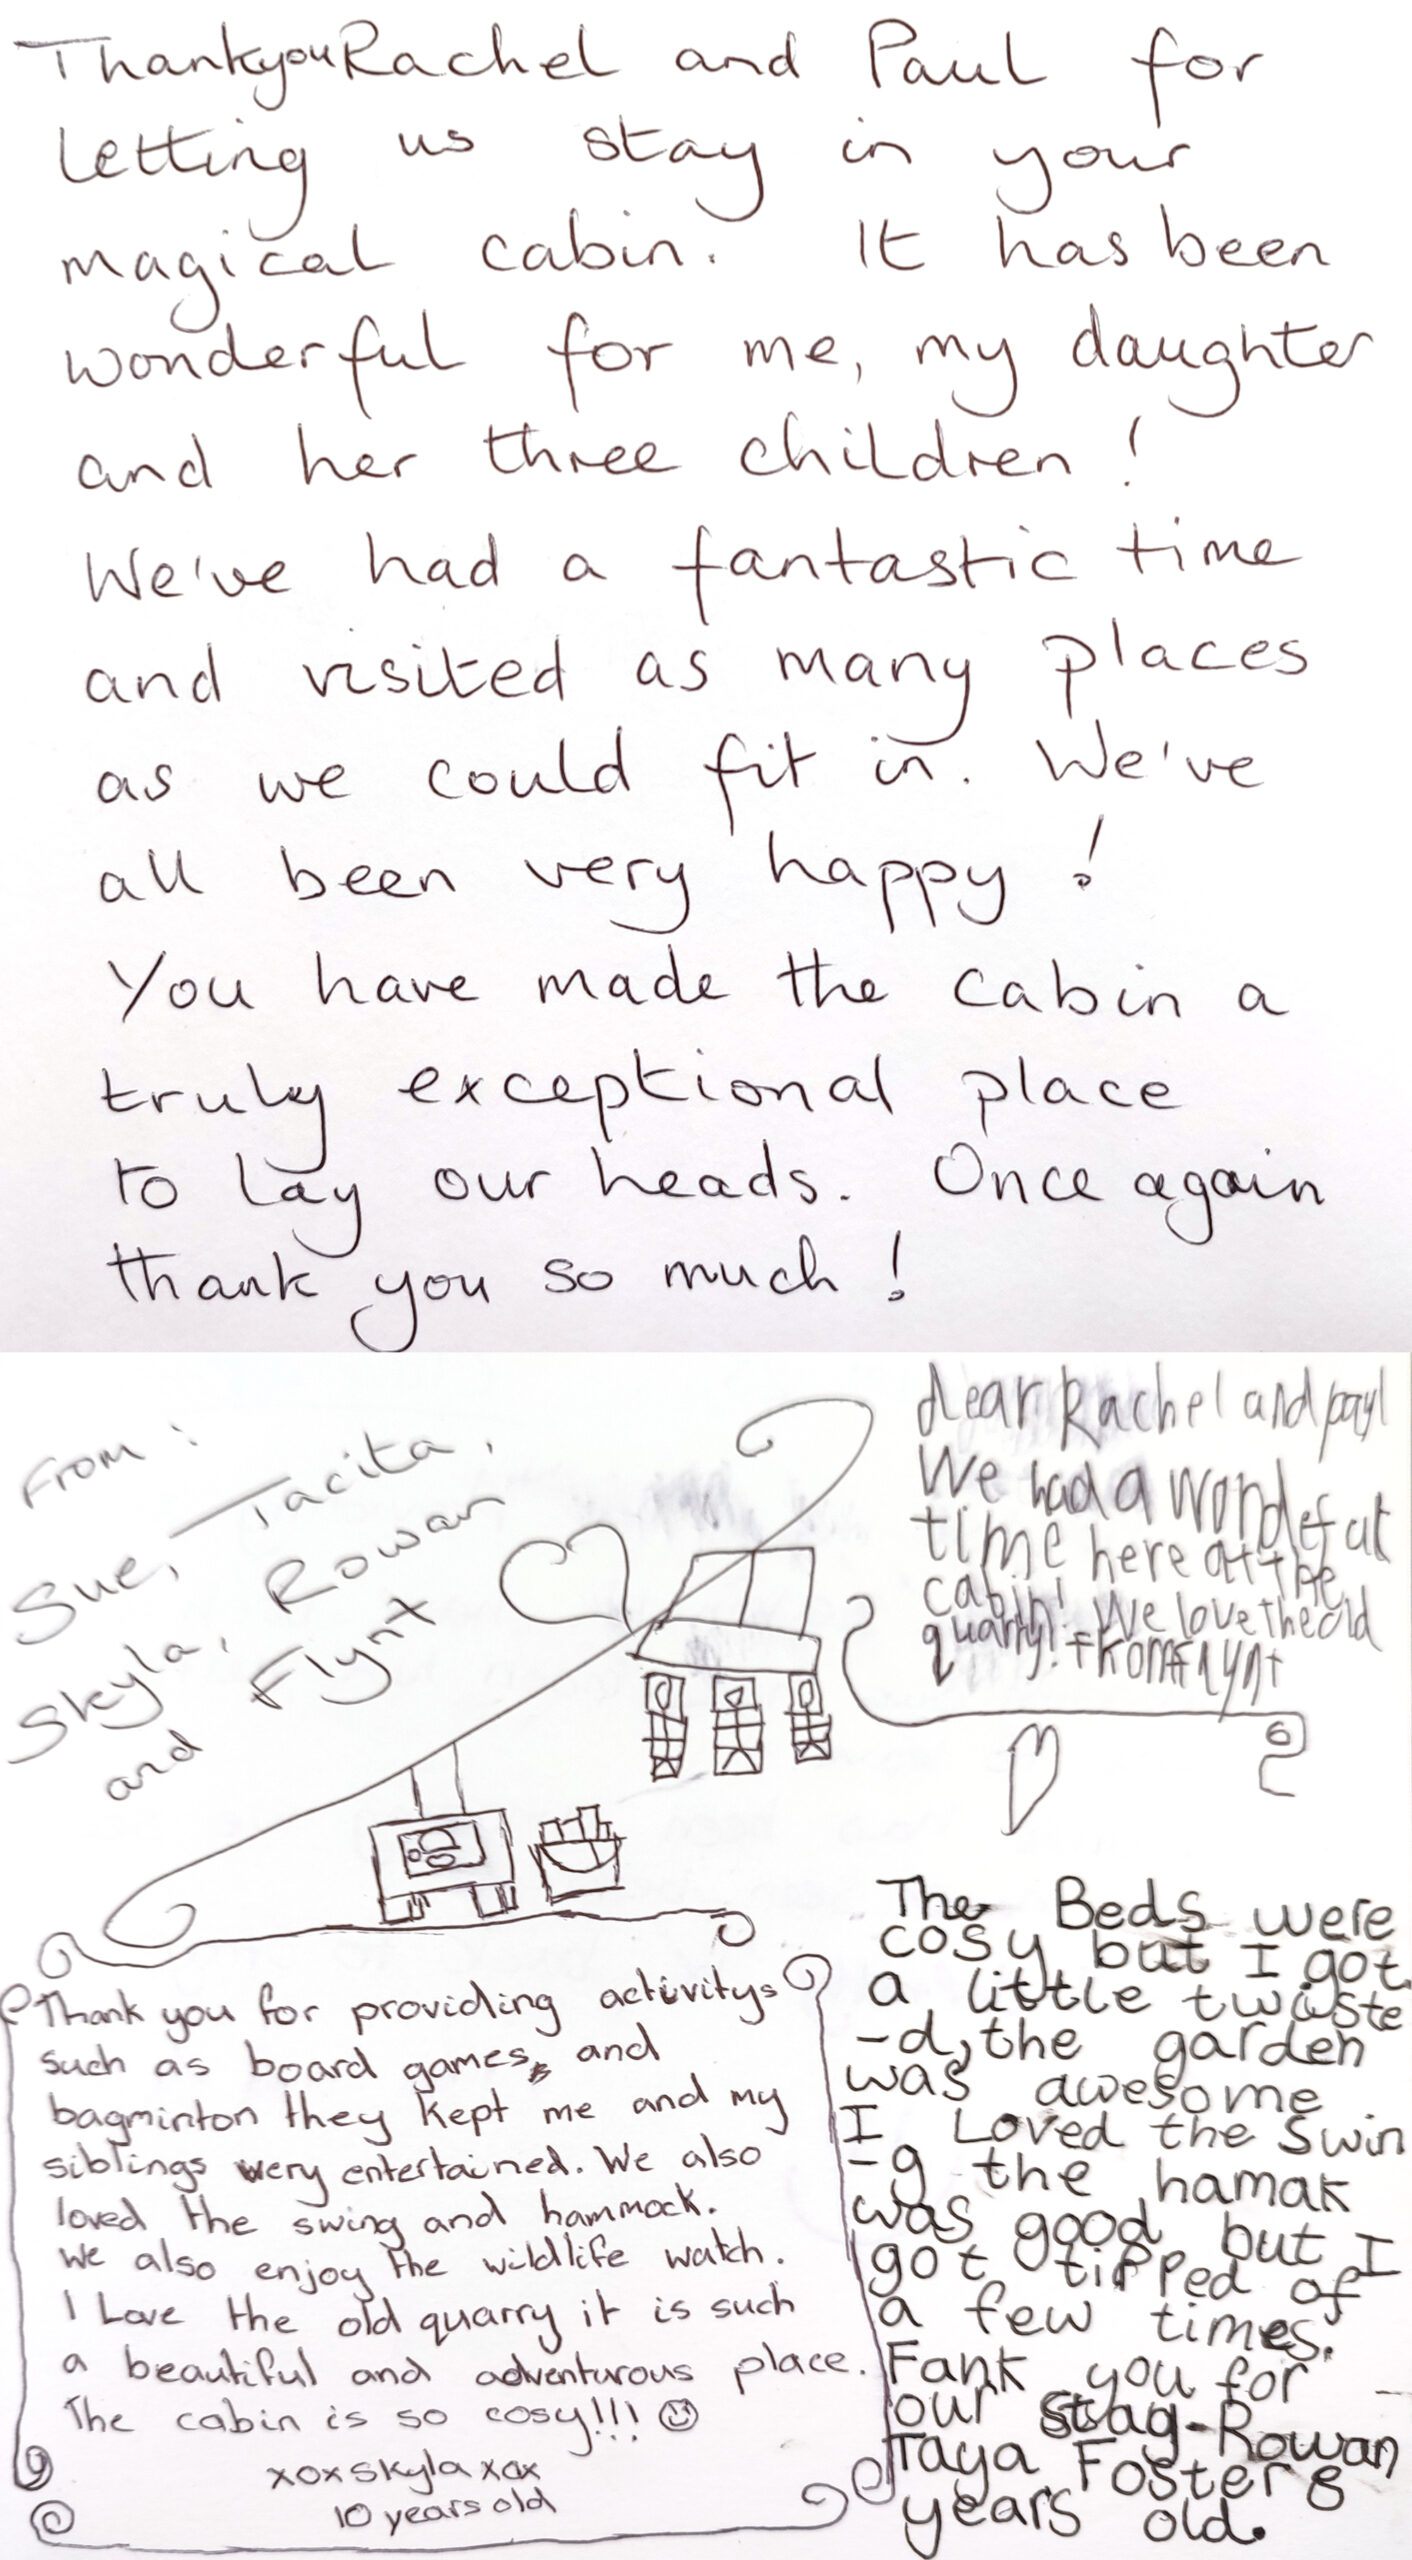 ThankyouRachel and Paul for
letting us stay in your
magical cabin. It has been
wonderful for me, my daughter
and her three children!
We've had a fantastic time
and visited as many places
as we could fit in. We've
all been very happy!
You have made the cabin a
truly exceptional place
to lay our heads. Once again
thank you so much!
From:
Sue, Tacita,
Skyla, Rowan
and Flynt
dear Rachel and payl
We had a wondefull
time here at the
cabin! We love the old
quarry! from Flynt
Thank you for providing activitys
such as board games, and
bagminton they kept me and my
siblings very entertained. We also
loved the swing and hammock.
We also enjoy the wildlife watch.
I Love the old quarry it is such
a beautiful and adventurous place.
The cabin is so cosy!!!
xoxskylaxox
10 years old
The Beds were
cosy but I got
a little twiste
-d, the garden
was awesome
I Loved the Swin
-g the hamak
was good but I
got tipped of
a few times.
Fank you for
our stay-Rowan
Taya Foster 8
years old.